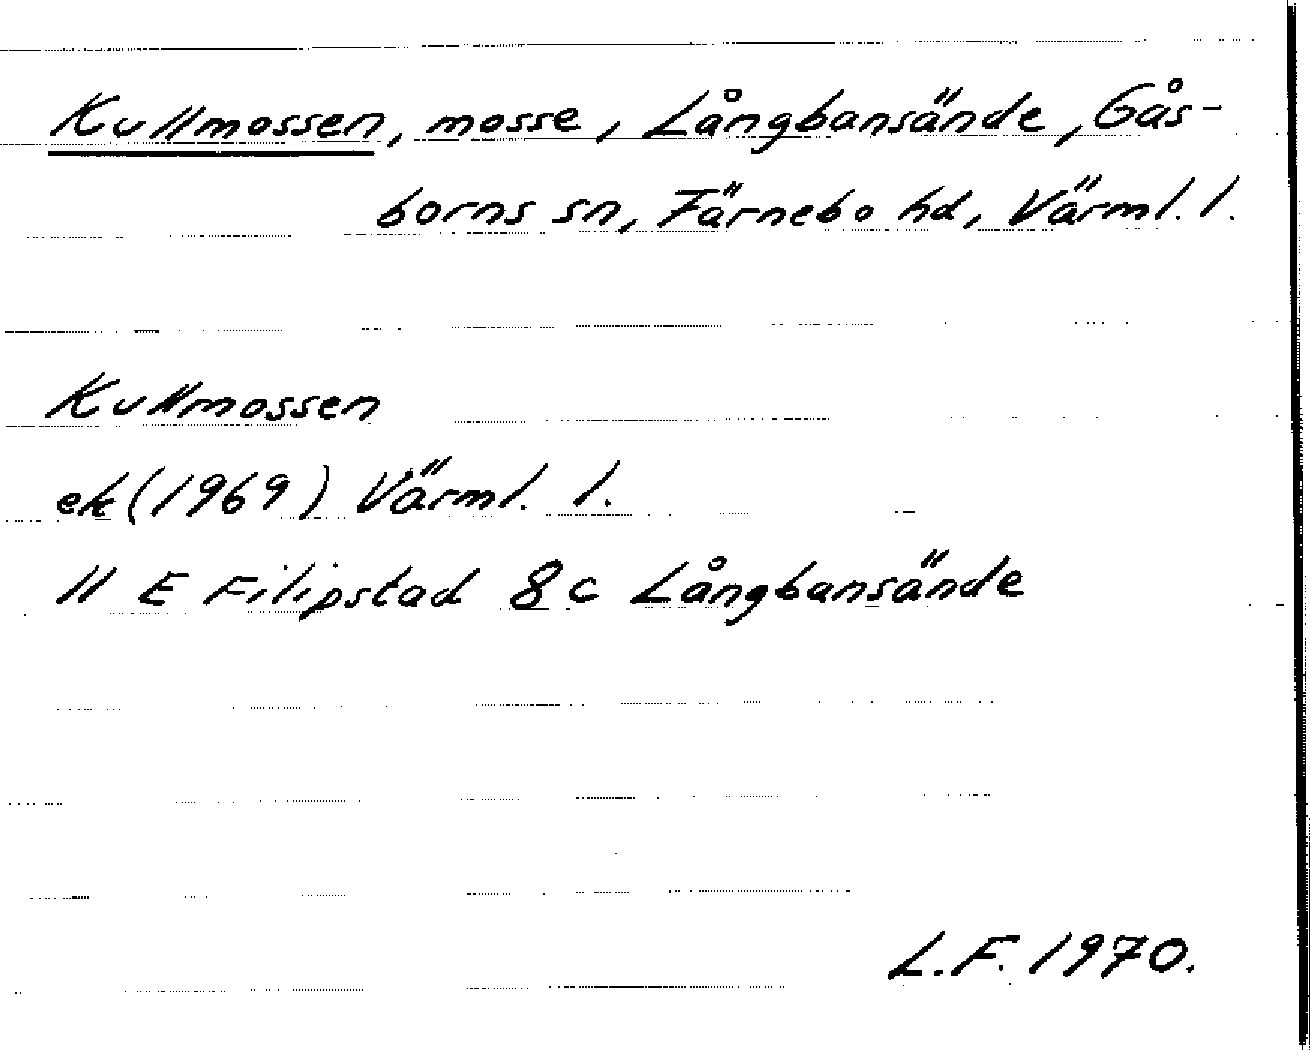 Kullmossen, mosse, Långbansände, Gås-
borns sn, Färnebo hd, Värml. l.
Kullmossen
ek (1969) Värml. l.
11 E Filipstad 8 c Långbansände
L.F. 1970.